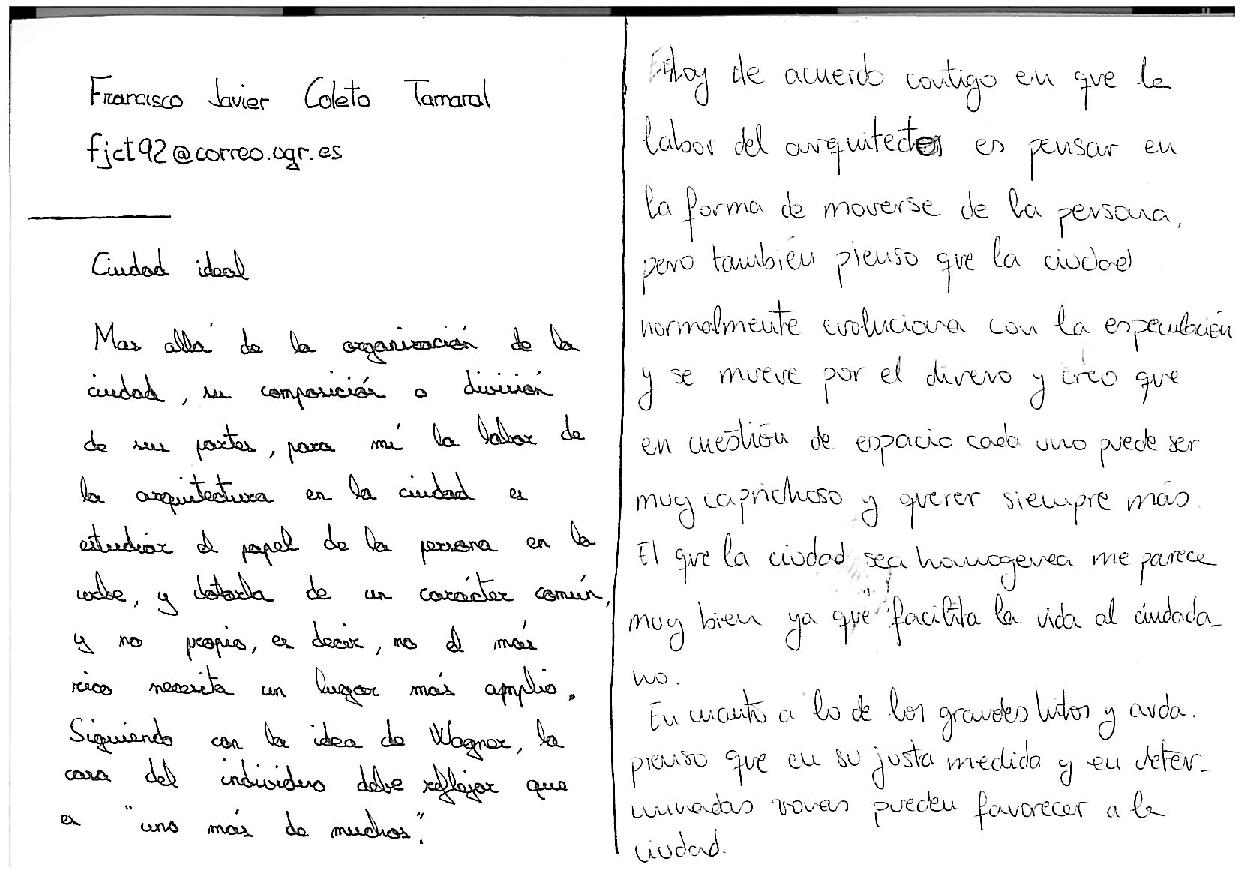 Francisco Javier Coleto Tamaral
fjct92@correo.ugr.es
Ciudad ideal
Mas allá de la organización de la
ciudad, su composición o división
de sus partes, para mí la labor de
la arquitectura en la ciudad es
estudiar el papel de la persona en la
urbe, y dotarla de un carácter común,
y no propio, es decir, no el más
rico necesita un lugar más amplio.
Siguiendo con la idea de Wagner, la
casa del individuo debe reflejar que
es "uno más de muchos".
Estoy de acuerdo contigo en que la
labor del arquitecto es pensar en
la forma de moverse de la persona,
pero también pienso que la ciudad
normalmente evoluciona con la especulación
y se mueve por el dinero y creo que
en cuestión de espacio cada uno puede ser
muy caprichoso y querer siempre más.
El que la ciudad sea homogenea me parece
muy bien ya que facilita la vida al ciudada_
no.
En cuanto a lo de los grandes hitos y avda.
pienso que en su justa medida y en deter_
minadas zonas pueden favorecer a la
ciudad.